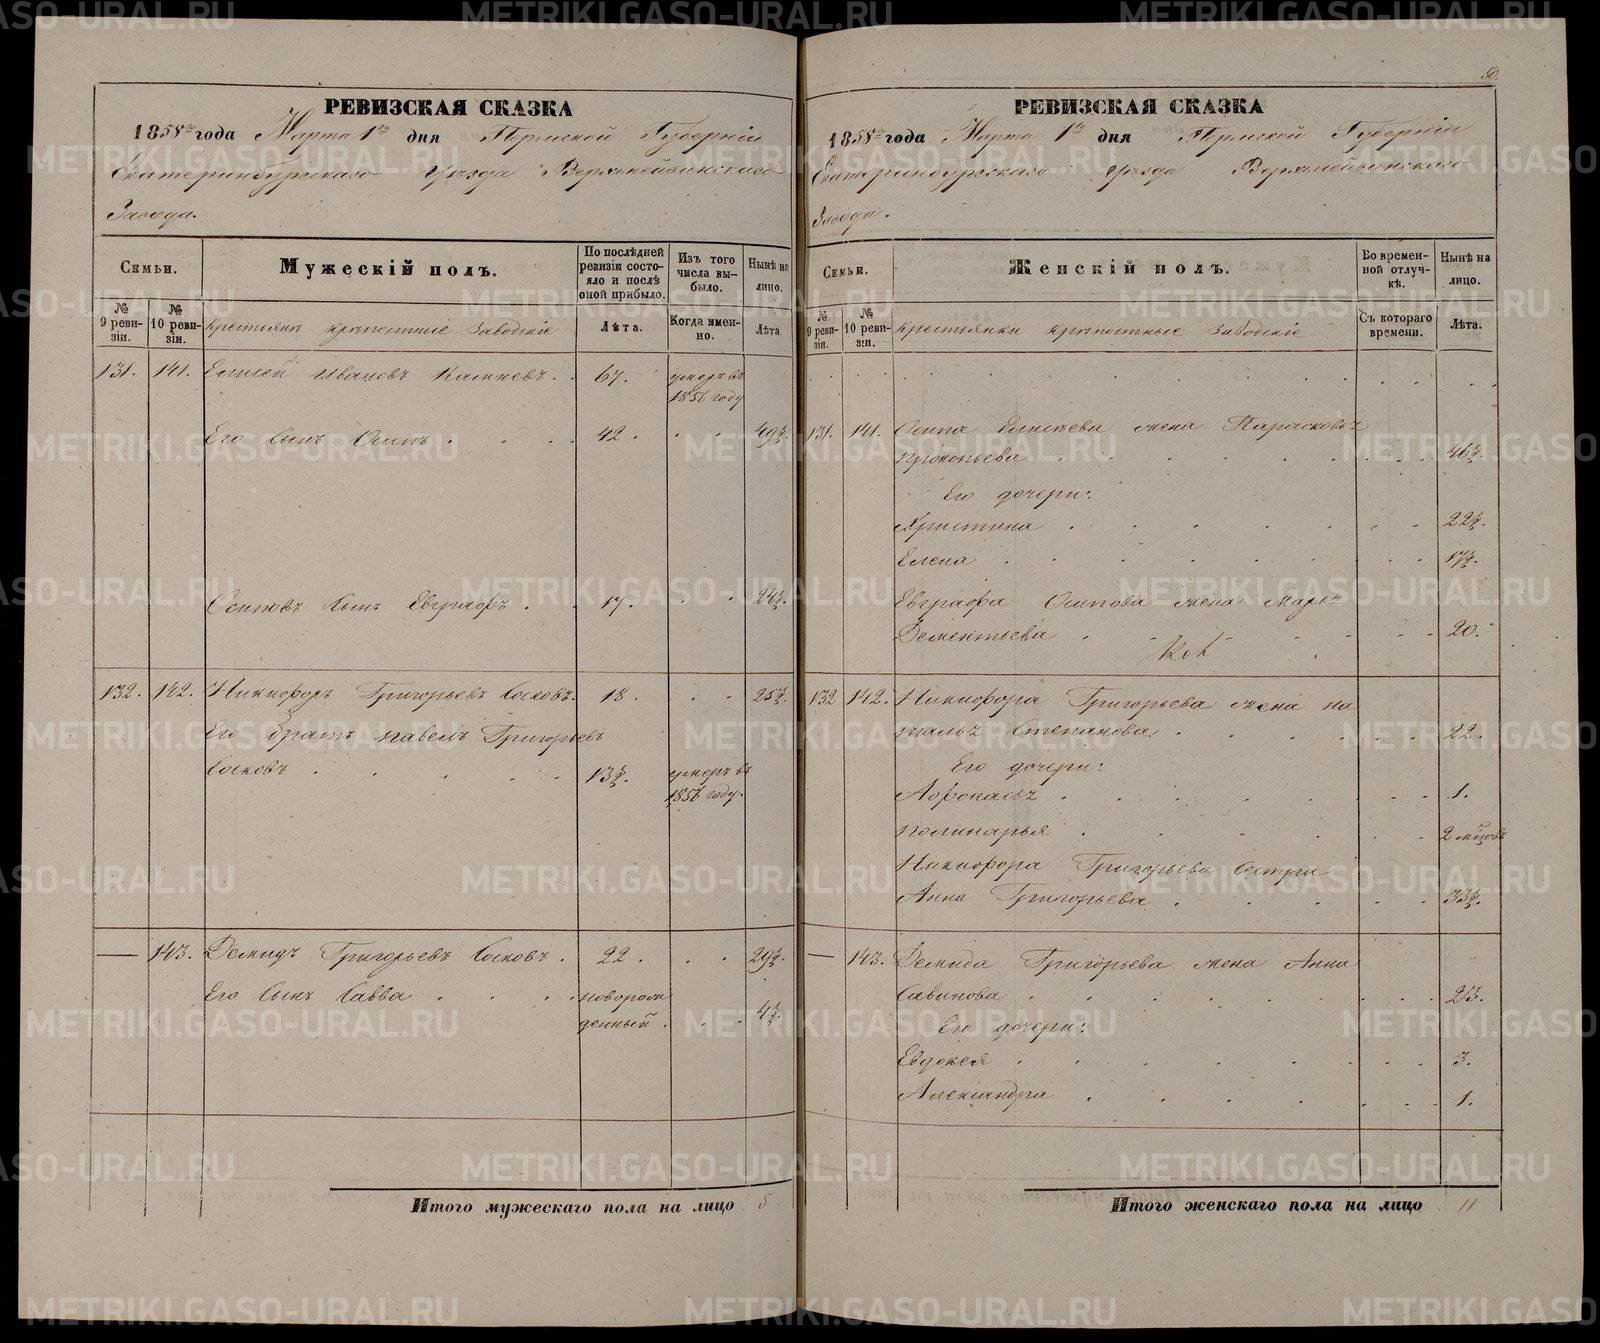 50.
РЕВИЗСКАЯ СКАЗКА
1858го года Марта 1го дня Пермской Губернiи
Екатеринбургскаго Уѣзда Верхнейвинскаго
Завода.
Семьи.
Мужескiй полъ.
По послѣдней ревизiи состояло и послѣ оной прибыло.
Изъ того числа выбыло.
Нынѣ на лицо.
№ 9 ревизiи.
№ 10 ревизiи.
Крестьяне крѣпостные Заводскiе
Лѣта.
Когда именно.
Лѣта
131. 141. Елисей Ивановъ 67. умеръ въ 1856 году
Его Сынъ Осипъ 42. 49½.
Осиповъ Сынъ Евграфъ 17. 24½.
132. 142. Никифоръ Григорьевъ Сосковъ. 18. 25½.
Его братъ Павелъ Григорьевъ
Сосковъ 13½. умеръ въ 1856 году.
— 143. Демидъ Григорьевъ Сосковъ. 22. 29½.
Его Сынъ Савва новорожденный. 4½.
Итого мужескаго пола на лицо 5
РЕВИЗСКАЯ СКАЗКА
1858го года Марта 1го дня Пермской Губернiи
Екатеринбургскаго Уѣзда Верхнейвинскаго
Завода.
Семьи.
Женскiй полъ.
Во временной отлучкѣ.
Нынѣ на лицо.
№ 9 ревизiи.
№ 10 ревизiи.
Крестьянки крѣпостные Заводскiе
Съ котораго времени.
Лѣта.
131. 141. Осипа Елисѣева жена Парасковья
Прокопьева 46½.
Его дочери:
Христина 22½.
Елена 17½.
Евграфа Осипова жена Марья
Дементьева 20.
132 142. Никифора Григорьева жена На
талья Степанова 22.
Его дочери:
Афонасья 1.
Полинарья 2 мѣсцовъ
Никифора Григорьева Сестра
Анна Григорьева 33½.
— 143. Демида Григорьева жена Анна
Савинова 25½.
Его дочери:
Евдокея 3.
Александра 1.
Итого женскаго пола на лицо 11
METRIKI.GASO-URAL.RU